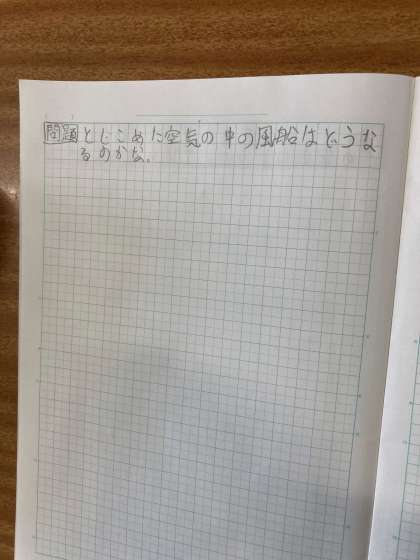 問題 とじこめた空気の中の風船はどうな
るのかな。